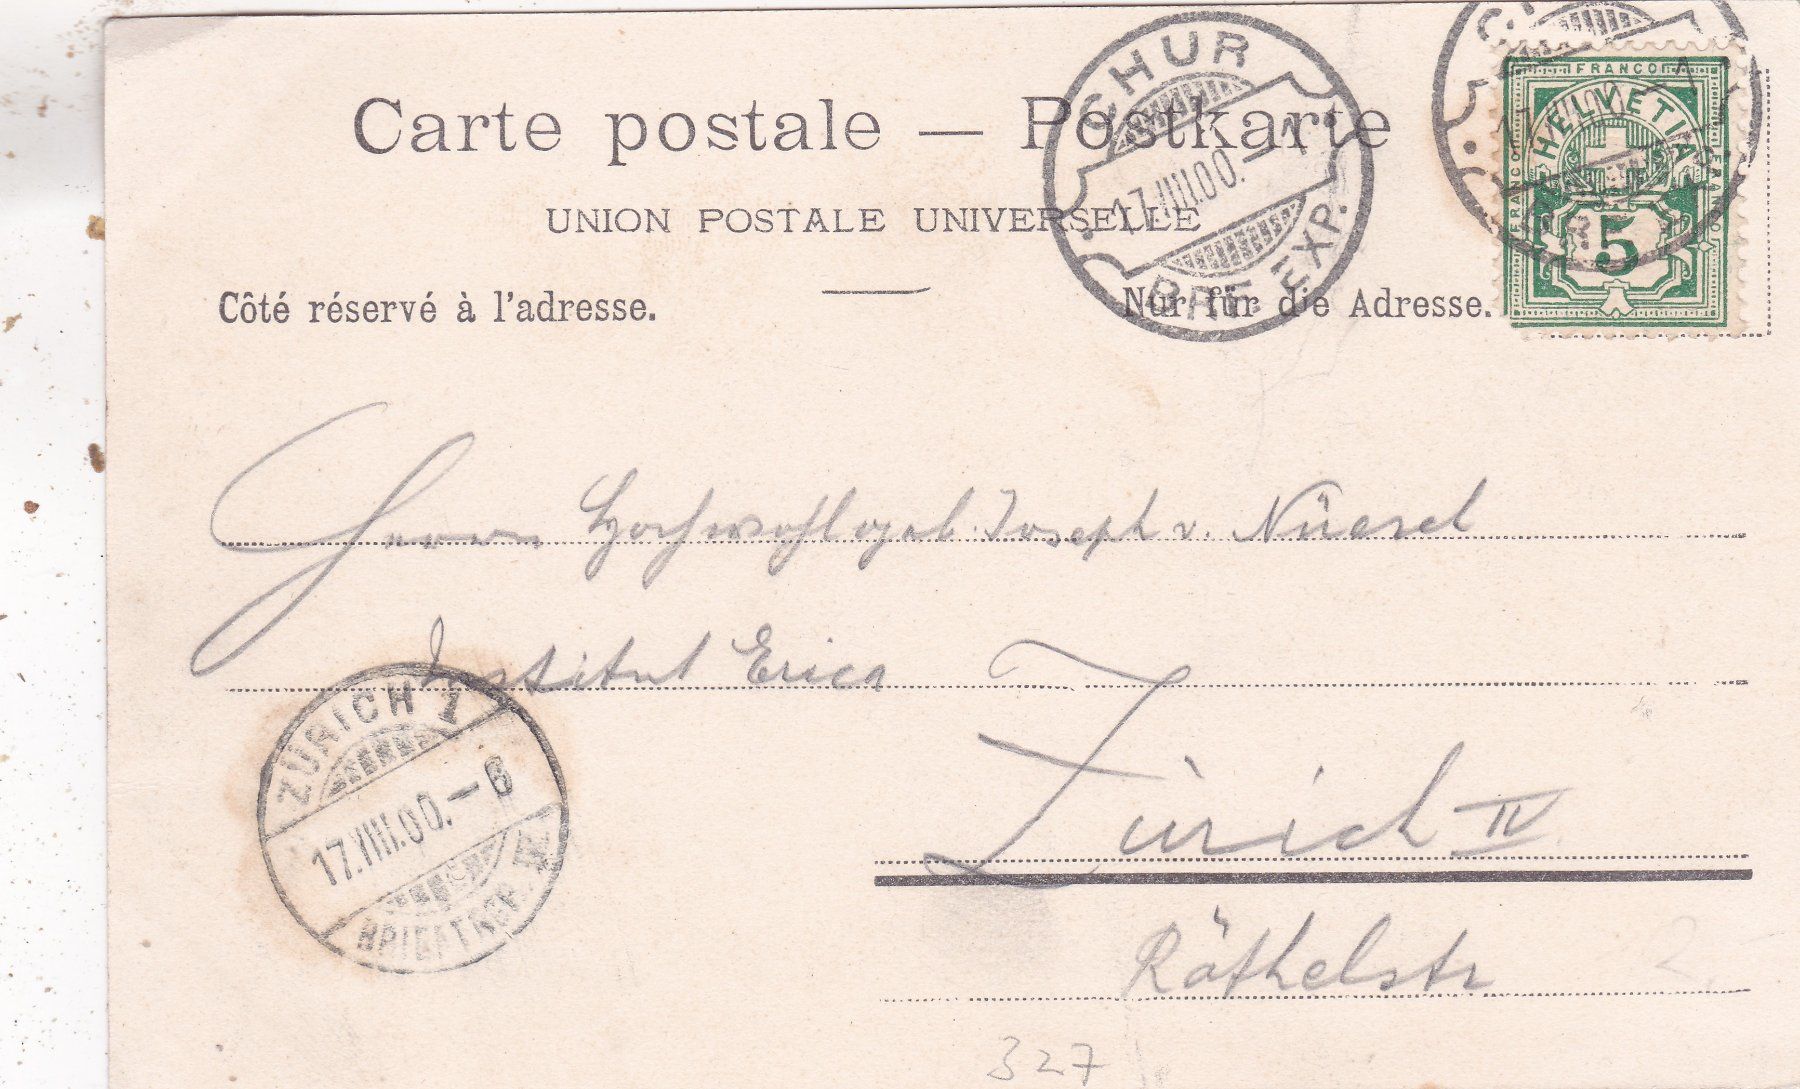 Carte postale — Postkarte
UNION POSTALE UNIVERSELLE
Côté réservé à l'adresse.
Nur für die Adresse.
CHUR
17.VIII.00.–1
BRF. EXP.
FRANCO
FRANCO
FRANCO
HELVETIA
5
Herrn Hochwohlgeb. Joseph v.
Institut Erica
Zürich IV
Röthelstr
ZÜRICH 1
17.VIII.00.–6
327